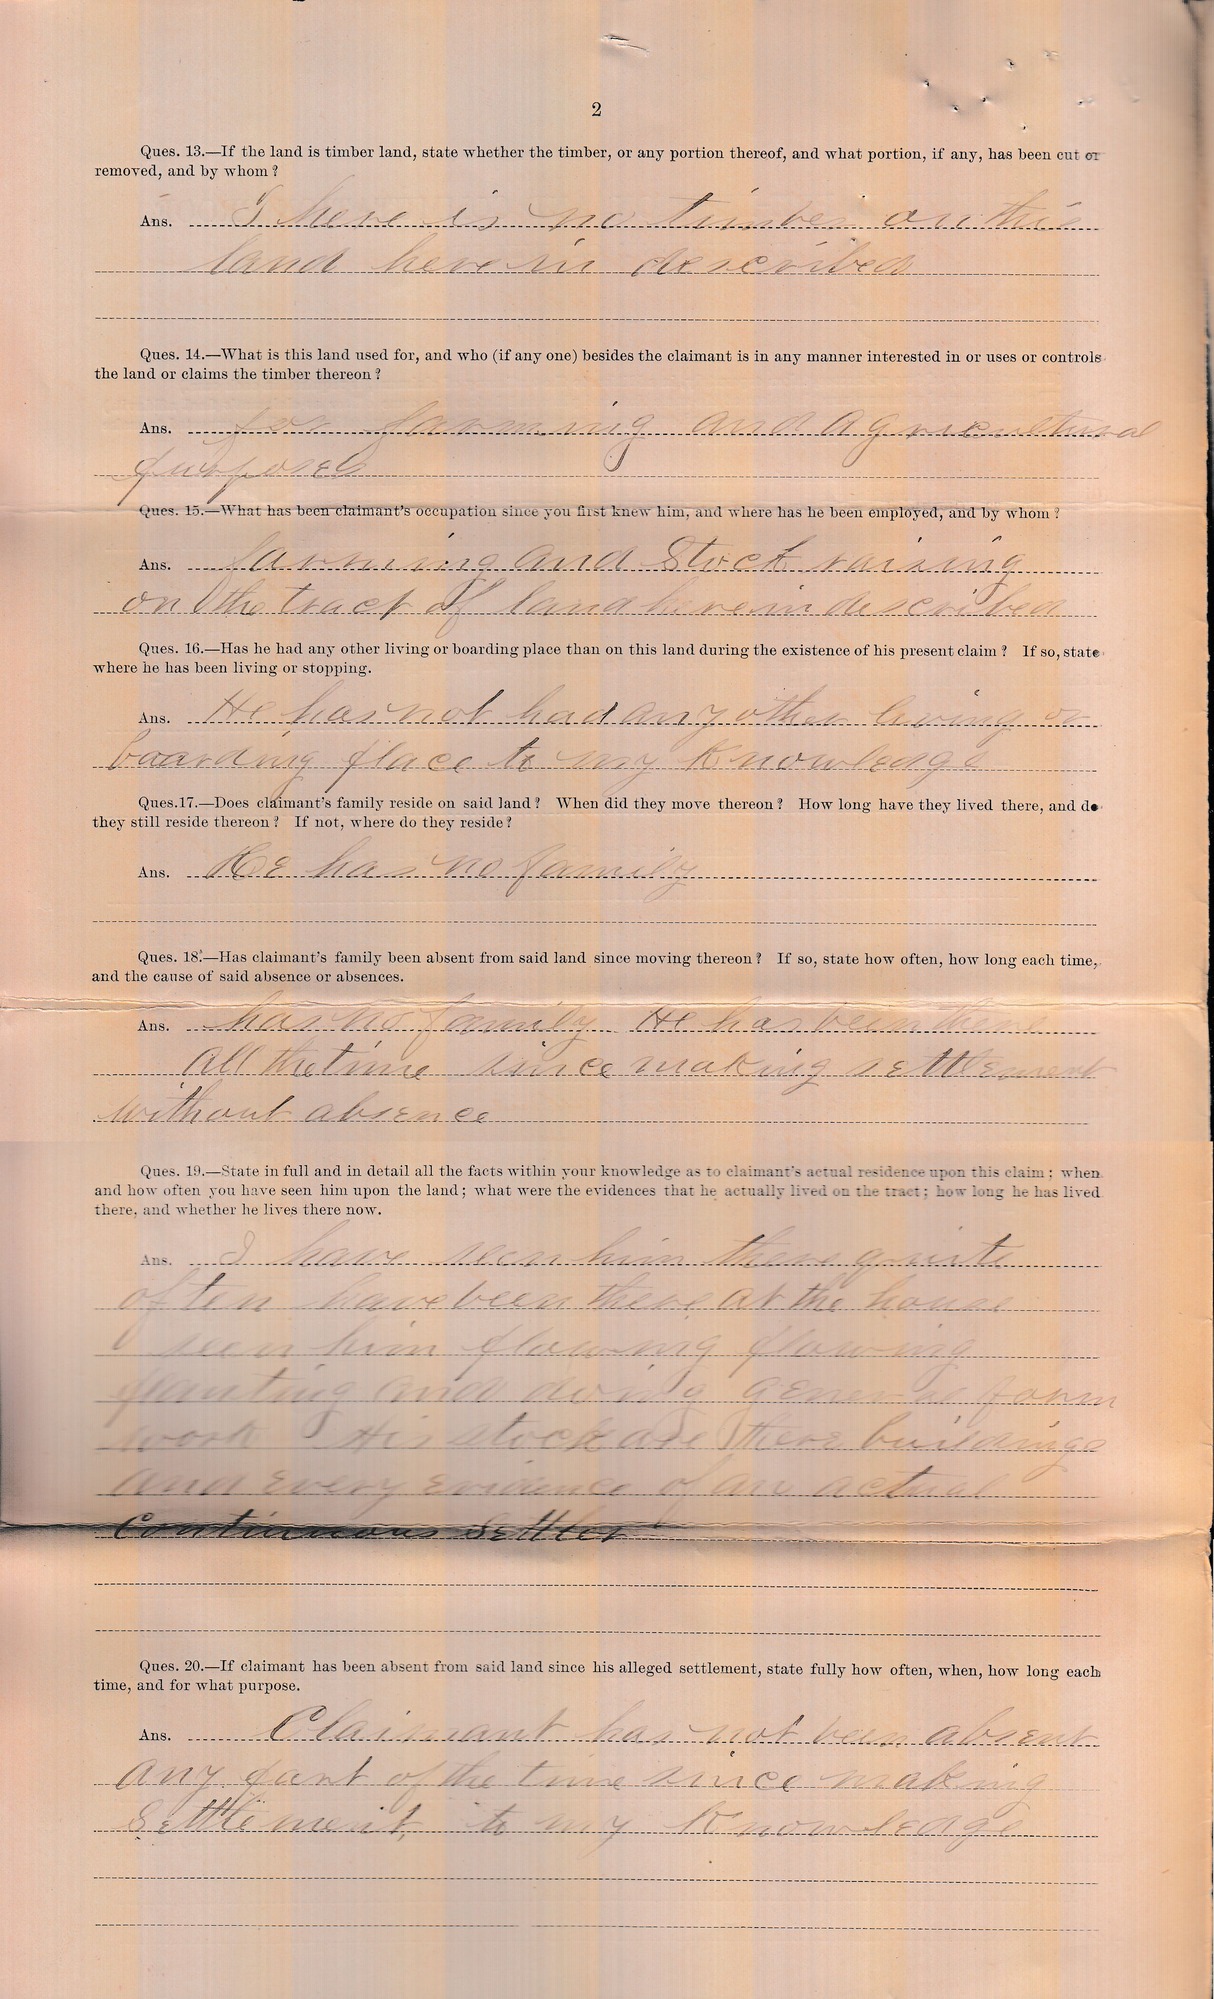 2
Ques. 13.—If the land is timber land, state whether the timber, or any portion thereof, and what portion, if any, has been cut or
removed, and by whom?
Ans. There is no timber on this
land herein described
Ques. 14.—What is this land used for, and who (if any one) besides the claimant is in any manner interested in or uses or controls
the land or claims the timber thereon?
Ans. for farming and agricultural
purposes
Ques. 15.—What has been claimant's occupation since you first knew him, and where has he been employed, and by whom?
Ans. farming and Stock raising
on the tract of land herein described
Ques. 16.—Has he had any other living or boarding place than on this land during the existence of his present claim? If so, state
where he has been living or stopping.
Ans. He has not had any other living or
boarding place to my Knowledge
Ques.17.—Does claimant's family reside on said land? When did they move thereon? How long have they lived there, and do
they still reside thereon? If not, where do they reside?
Ans. He has no family
Ques. 18.—Has claimant's family been absent from said land since moving thereon? If so, state how often, how long each time,
and the cause of said absence or absences.
Ans. has no family He has been there
all the time since making settlement
without absence
Ques. 19.—State in full and in detail all the facts within your knowledge as to claimant's actual residence upon this claim; when
and how often you have seen him upon the land; what were the evidences that he actually lived on the tract; how long he has lived
there, and whether he lives there now.
Ans. I have seen him there quite
often have been there at the house
seen him plowing plowing
planting and doing general farm
work His stock are there buildings
and every evidence of an actual
Continuous Settler
Ques. 20.—If claimant has been absent from said land since his alleged settlement, state fully how often, when, how long each
time, and for what purpose.
Ans. Claimant has not been absent
any part of the time since making
Settlement, to my Knowledge